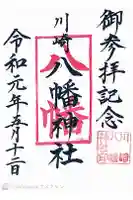 御参拝記念
川崎
八幡神社
八幡
令和元年五月十二日